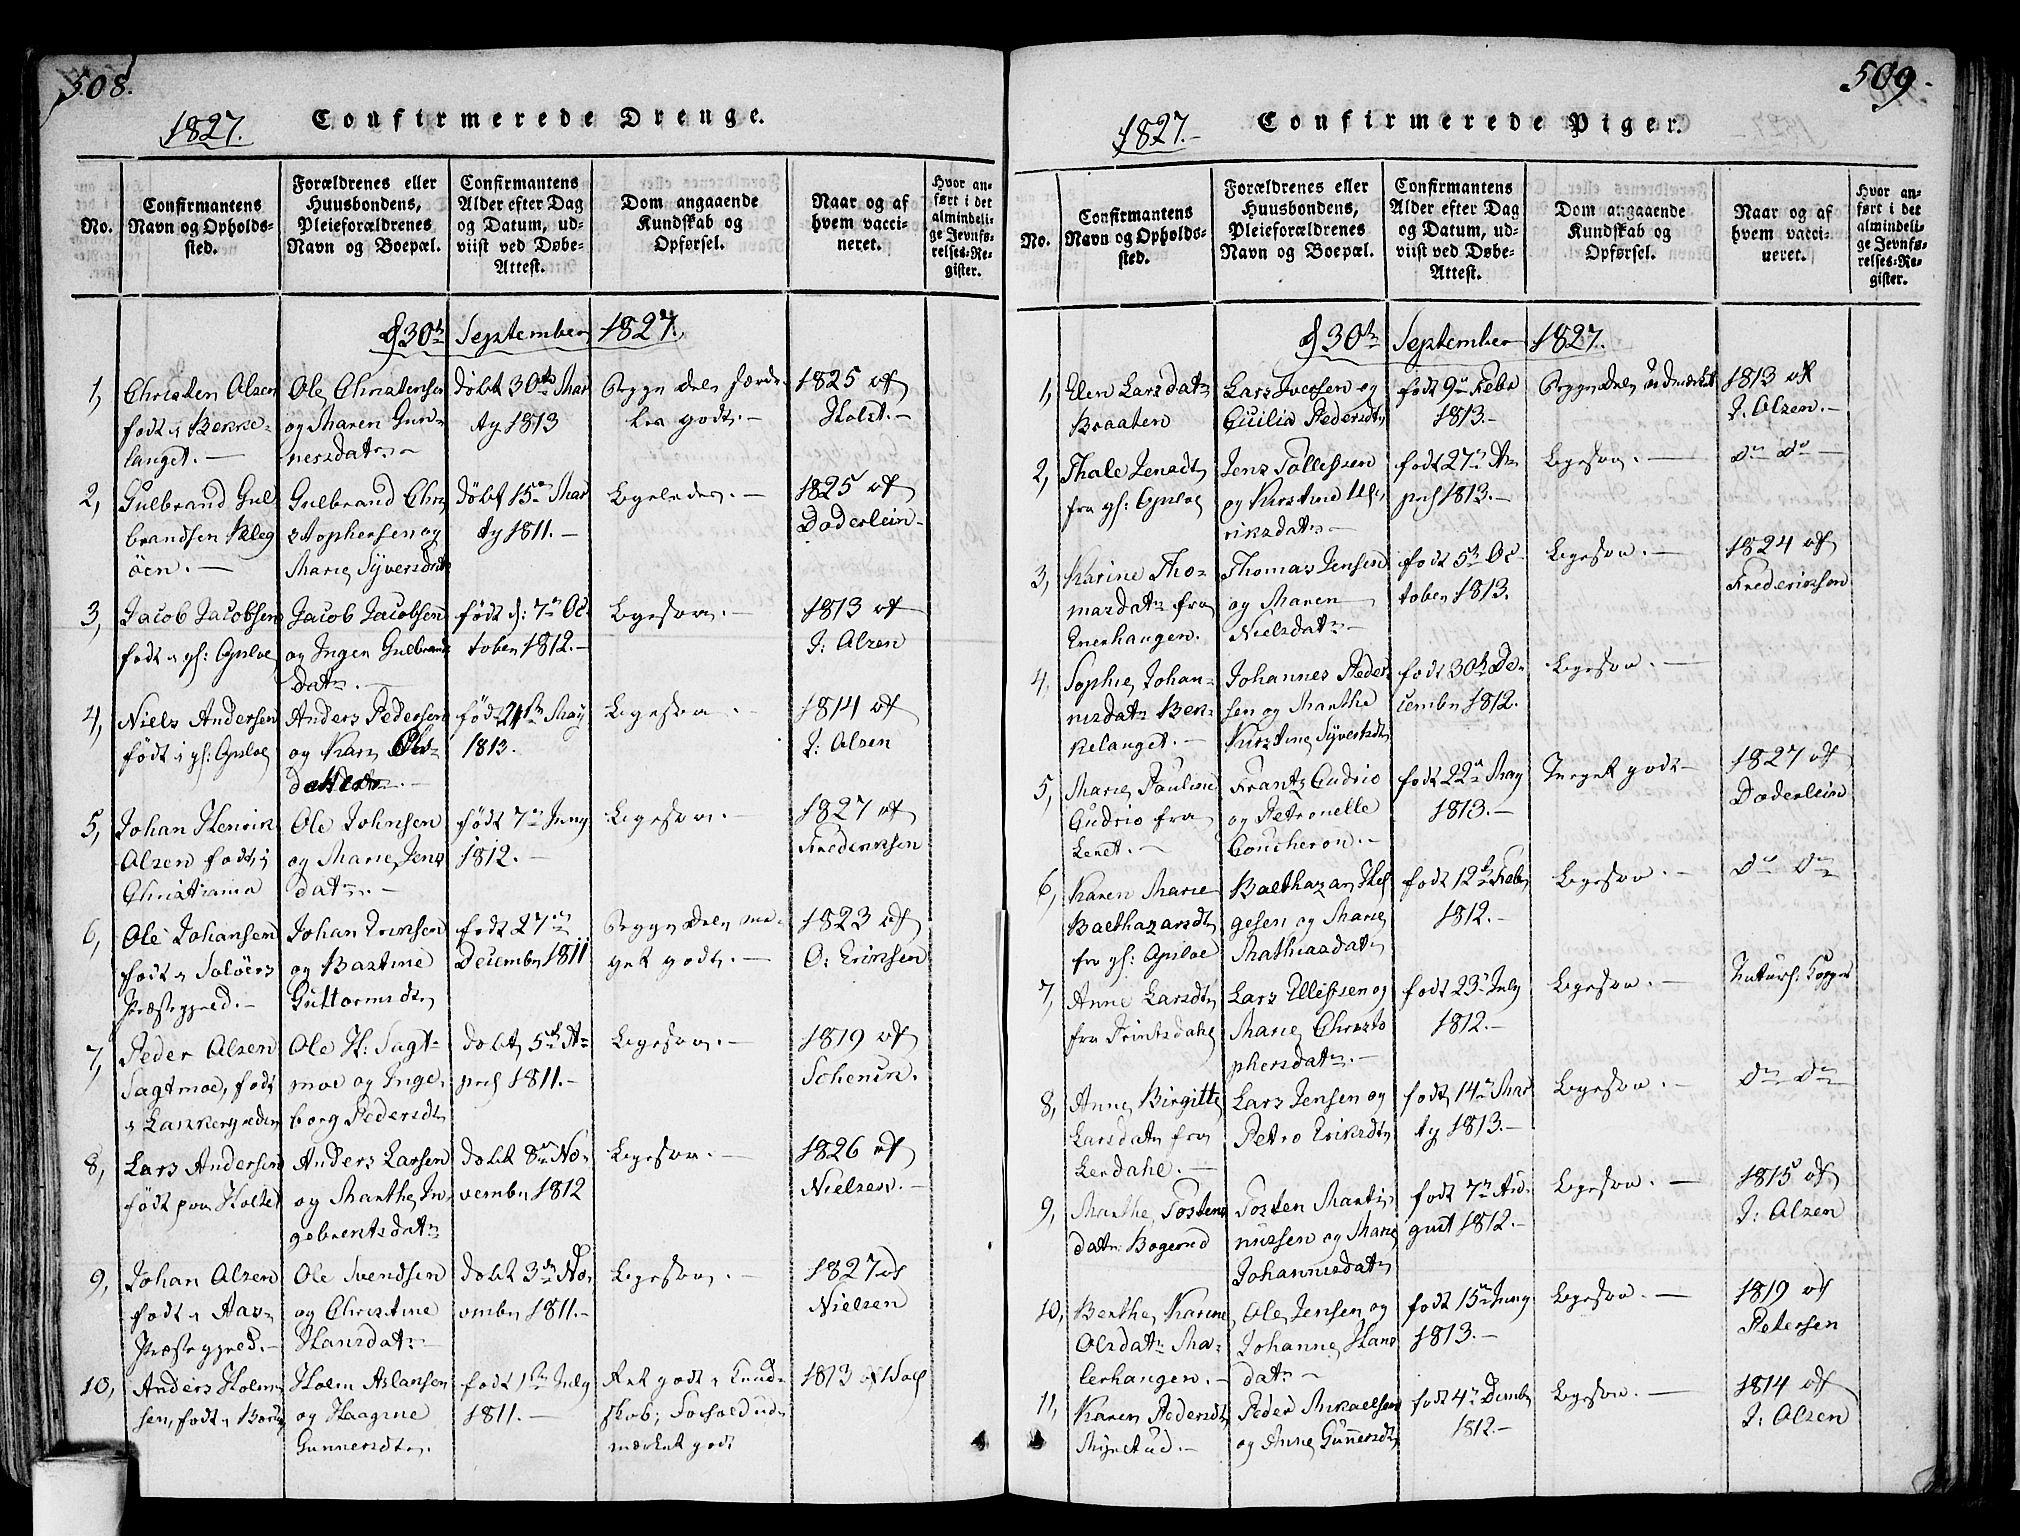 508.
1827.
Confirmerede Drenge.
No.
Confirmantens
Navn og Opholds-
sted.
Forældrenes eller
Huusbondens,
Pleieforældrenes
Navn og Boepæl.
Confirmantens
Alder efter Dag
og Datum, ud-
viist ved Døbe-
Attest.
Dom angaaende
Kundskab og
Opførsel.
Naar og af
hvem vacci-
neret.
Hvor an-
ført i det
almindeli-
ge Jevnfø-
relses-Re-
gister.
30te September 1827.
1, Christen Olsen
født i Bekke-
langet.
Ole Christensen
og Maren Gun-
nersdatr
døbt 30te Mar
ty 1813
Begge Dele særde-
les godt.
1825 af
Holst.
2, Gulbrand Gul
brandsen Kleg
øen.
Gulbrand Chri
stophersen og
Marie Syversdtr
døbt 15de Mar
ty 1811.
Ligeledes.
1825 af
Døderlein
3, Jacob Jacobsen
født i gl: Opsloe
Jacob Jacobsen
og Inger Gulbrands
datr.
født d: 7de Oc-
tober 1812.
Ligesaa.
1813 af
J: Olsen
4, Niels Andersen
født i gl: Opsloe
Anders Pedersen
og Kari
født 21de May
1813.
Ligesaa
1814 af
J: Olsen
5, Johan Henrik
Olsen født i
Christiania
Ole Johnsen
og Marie Jens
datr.
født 7de Juny
1812.
Ligesaa.
1827 af
Frederiksen
6, Ole Johansen
født i Soløers
Præstegjeld.
Johan Eriksen
og Bastine
Guttormsdtr
født 27de
December 1811
Begge Dele me-
get godt.
1823 af
O: Eriksen
7, Peder Olsen
Sagtmoe, født
i Lakkergaden
Ole H: Sagt-
moe og Inge-
borg Pedersdtr
døbt 5te A-
pril 1811.
Ligesaa.
1819 af
8, Lars Andersen
født paa Holtet
Anders Larsen
og Marthe In-
gebretsdatr
døbt 8de No-
vember 1812
Ligesaa.
1826 af
Nielsen.
9, Johan Olsen
født i Aas-
Præstegjeld.
Ole Svendsen
og Christine
Hansdatr
døbt 3de No-
vember 1811.
Ligesaa.
1827 af
Nielsen
10, Anders Holm-
sen, født i
Holm Aslansen
og Haagine
Gunnersdtr.
født 1ste July
1811.
Ret godt i Kund-
skab; Forhold ud-
mærket godt
1813 af
509.
1827.
Confirmerede Piger.
No.
Confirmantens
Navn og Opholds-
sted.
Forældrenes eller
Huusbondens,
Pleieforældrenes
Navn og Boepæl.
Confirmantens
Alder efter Dag
og Datum, ud-
viist ved Døbe-
Attest.
Dom angaaende
Kundskab og
Opførsel.
Naar og af
hvem vacci-
neret.
Hvor an-
ført i det
almindeli-
ge Jevnfø-
relses-Re-
gister.
30te September 1827.
1, Elen Larsdatr
Braaten
Lars Iversen og
Cicilia Pedersdtr
født 9de Febr
1813.
Begge Dele Udmærket
1813 af
J. Olsen.
2, Thale Jensdtr
fra gl: Opsloe
Jens Tollefsen
og Kirstine Ul-
riksdatr
født 27de A-
pril 1813.
Ligesaa.
do do
3, Karine Tho-
masdatr fra
Enerhaugen.
Thomas Jensen
og Maren
Nielsdatr
født 5te Oc
tober 1813.
Ligesaa.
1824 af
Frederiksen
4, Sophie Johan-
nesdatr Bek-
kelanget.
Johannes Peder
sen og Marthe
Kirstine Syversdtr
født 30te De-
cember 1812.
Ligesaa.
5, Marie Pauline
Gudrio fra
Leret.
Frantz Gudrio
og Petronelle
Coucheron.
født 22de May
1813.
Meget godt
1827 af
Døderlein
6, Karen Marie
Balthazarsdtr
fra gl: Opsloe
Balthazar Hel
gesen og Marie
Mathiasdatr
født 12te Febr
1812.
Ligesaa.
do do
7, Anne Larsdtr
fra Printsdahl
Lars Ellefsen og
Marie Christo
phersdatr.
født 23de July
1812.
Ligesaa.
Naturl: Kopper
8, Anne Birgitte
Larsdatr fra
Lerdahl.
Lars Jensen og
Petro Eriksdtr
født 14de Mar
ty 1813.
Ligesaa.
do do
9, Marthe Tostens
datr Bogerud
Tosten Marti-
nussen og Marie
Johannesdatr
født 7de Au-
gust 1812.
Ligesaa.
1815 af
J: Olsen
10, Berthe Karine
Olsdatr Ma-
lerhaugen.
Ole Jensen og
Johanne Hans
datr
født 15de Juny
1813.
Ligesaa.
1819 af
Petersen
11, Karen Pedersdtr
Peder Mikaelsen
og Anne Gunnersdtr
født 4de Decemb
1812.
Ligesaa.
1814 af
J: Olsen